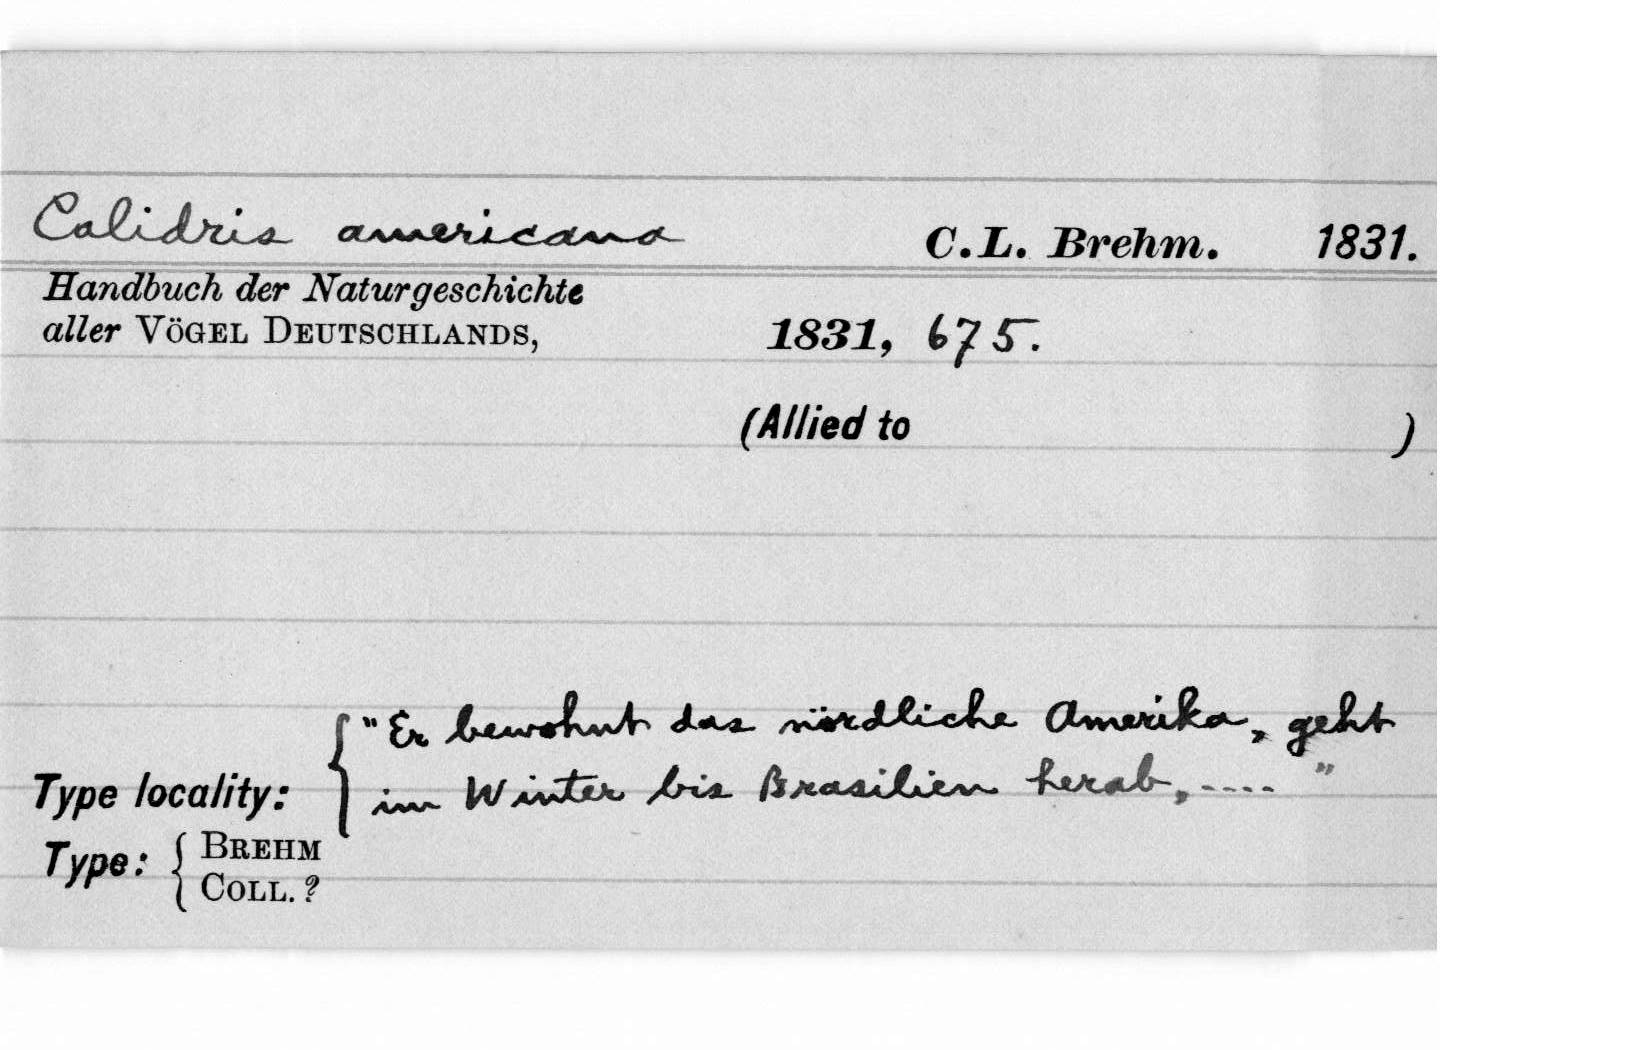 Calidris americana C.L. Brehm. 1831.
Handbuch der Naturgeschichte
aller VÖGEL DEUTSCHLANDS, 1831, 675.
(Allied to )
"Er bewohnt das nördliche Amerika, geht
Type locality: im Winter bis Brasilien herab, ----"
Type: BREHM
COLL. ?